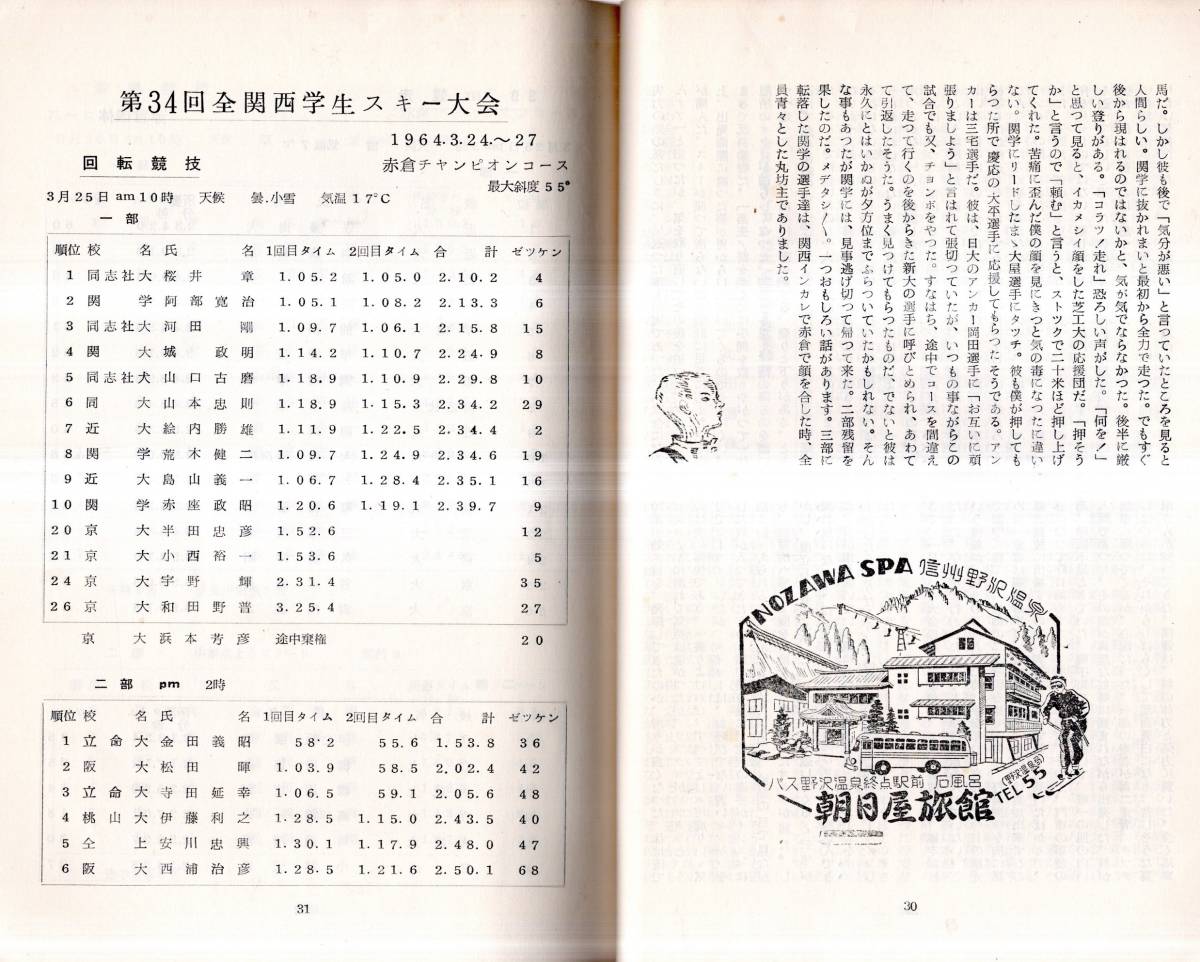 馬だ。しかし彼も後で「気分が悪い」と言つていたところを見ると
人間らしい。関学に抜かれまいと最初から全力で走つた。でもすぐ
後から現はれるのではないかと、気が気でならなかつた。後半に厳
しい登りがある。「コラツ！走れ」恐ろしい声がした。「何を！」
と思つて見ると、イカメシイ顔をした芝工大の応援団だ。「押そう
か」と言うので「頼む」と言うと、ストツクで二十米ほど押し上げ
てくれた。苦痛に歪んだ僕の顔を見にきつと気の毒になつたに違い
ない。関学にリードしたまゝ大屋選手にタツチ。彼も僕が押しても
らつた所で慶応の大平選手に応援してもらつたそうである。アン
カーは三宅選手だ。彼は、日大のアンカー岡田選手に「お互いに頑
張りましよう」と言はれて張切つていたが、いつもの事ながらこの
試合でも又、チヨンボをやつた。すなはち、途中でコースを間違え
て、走つて行くのを後からきた新大の選手に呼びとめられ、あわて
て引返したそうだ。うまく見つけてもらつたものだ。でないと彼は
永久にとはいかぬが夕方位までふらついていたかもしれない。そん
な事もあつたが関学には、見事逃げ切つて帰つて来た。二部残留を
果したのだ。メデタシ〳〵。一つおもしろい話があります。三部に
転落した関学の選手達は、関西インカレで赤倉で顔を合した時、全
員青々とした丸坊主でありました。
NOZAWA SPA 信州野沢温泉
バス野沢温泉終点駅前 石風呂
(野沢温泉局)
TEL 55
朝日屋旅館
30
第34回全関西学生スキー大会
1964.3.24.～27
回転競技 赤倉チャンピオンコース
最大斜度55°
3月25日am10時 天候 曇.小雪 気温17°C
一部
順位 校名 氏名 1回目タイム 2回目タイム 合計 ゼツケン
1 同志社大 桜井章 1.05.2 1.05.0 2.10.2 4
2 関学 阿部寛治 1.05.1 1.08.2 2.13.3 6
3 同志社大 河田剛 1.09.7 1.06.1 2.15.8 15
4 関大 城政明 1.14.2 1.10.7 2.24.9 8
5 同志社犬 山口古磨 1.18.9 1.10.9 2.29.8 10
6 同大 山本忠則 1.18.9 1.15.3 2.34.2 29
7 近大 絵内勝雄 1.11.9 1.22.5 2.34.4 2
8 関学 荒木健二 1.09.7 1.24.9 2.34.6 19
9 近大 島山義一 1.06.7 1.28.4 2.35.1 16
10 関学 赤座政昭 1.20.6 1.19.1 2.39.7 9
20 京大 半田忠彦 1.52.6 12
21 京大 小西裕一 1.53.6 5
24 京大 宇野輝 2.31.4 35
26 京大 和田野晋 3.25.4 27
京大 浜本芳彦 途中棄権 20
二部 pm 2時
順位 校名 氏名 1回目タイム 2回目タイム 合計 ゼツケン
1 立命大 金田義昭 58.2 55.6 1.53.8 36
2 阪大 松田暉 1.03.9 58.5 2.02.4 42
3 立命大 寺田延幸 1.06.5 59.1 2.05.6 48
4 桃山大 伊藤利之 1.28.5 1.15.0 2.43.5 40
5 仝上 安川忠興 1.30.1 1.17.9 2.48.0 47
6 阪大 西浦治彦 1.28.5 1.21.6 2.50.1 68
31